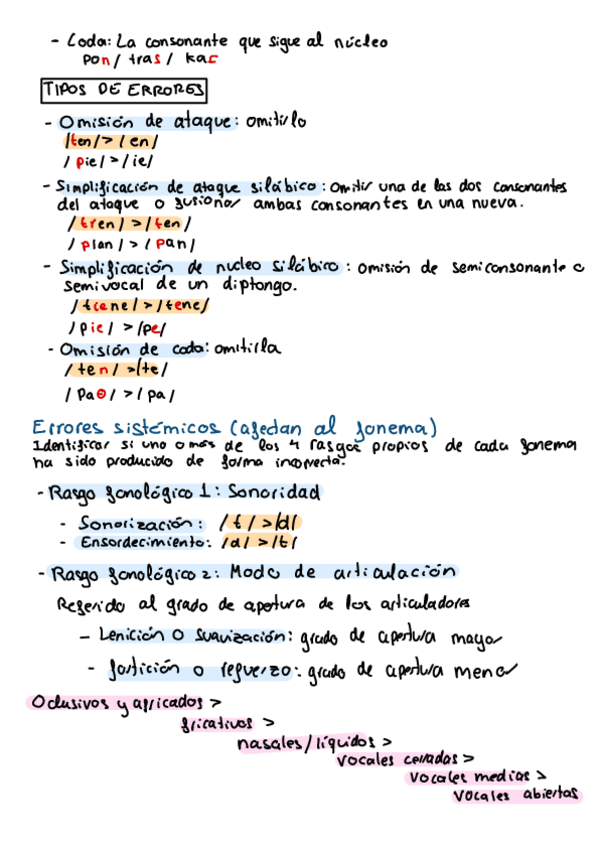 - Coda: La consonante que sigue al núcleo
pon / tras / kac
TIPOS DE ERRORES
- Omisión de ataque: omitirlo
/ten/ > / en/
/ pie/ > / ie/
- Simplificación de ataque silábico: omitir una de las dos consonantes
del ataque o fusionar ambas consonantes en una nueva.
/ tren/ > / ten/
/ plan / > / pan/
- Simplificación de nucleo silábico: omisión de semiconsonante o
semivocal de un diptongo.
/ tcene / > /tene/
/ pie / > /pe/
- Omisión de coda: omitirla
/ ten / >/te/
/ paθ / > / pa/
Errores sistémicos (afectan al fonema)
Identificar si uno o más de los 4 rasgos propios de cada fonema
ha sido producido de forma incorrecta.
- Rasgo fonológico 1: Sonoridad
- Sonorización: / t / >/d/
- Ensordecimiento: /d/ > /t/
- Rasgo fonológico 2: Modo de articulación
Referido al grado de apertura de los articuladores
- Lenición o suavización: grado de apertura mayor
- fortición o refuerzo: grado de apertura menor
Oclusivos y africados >
fricativos >
nasales/líquidos >
vocales cerradas >
vocales medias >
vocales abiertas